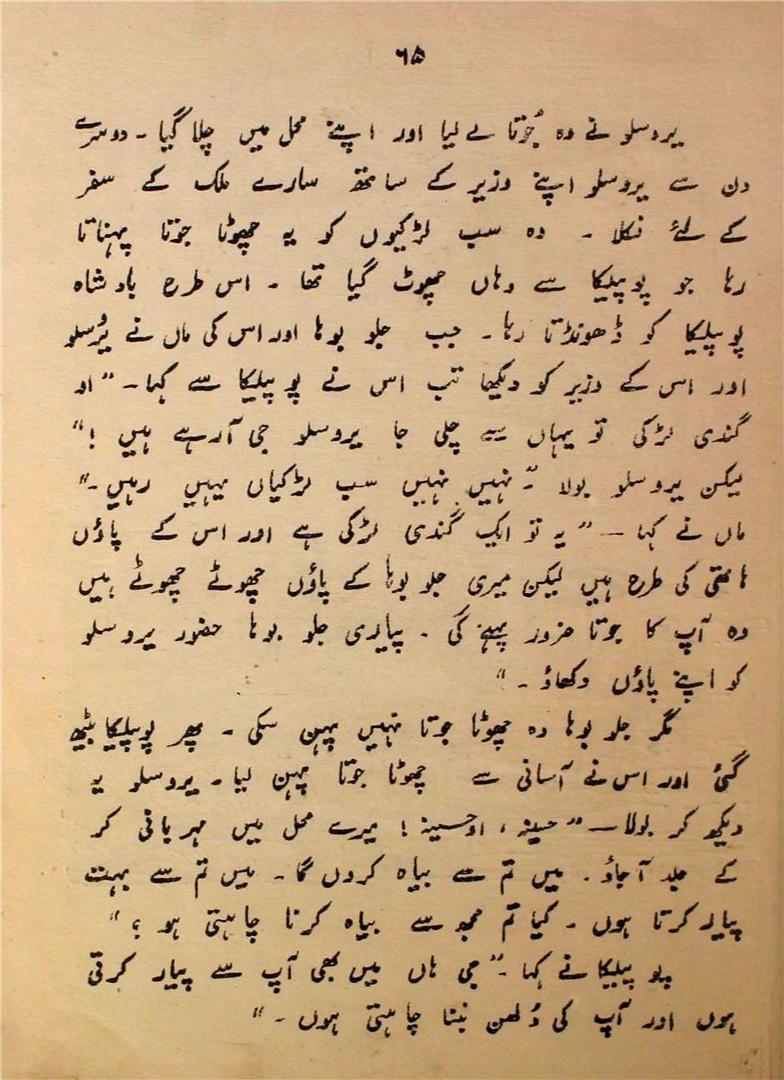 ۶۵
یروسلو نے وہ جُوتا لے لیا اور اپنے محل میں چلا گیا ۔ دوسرے
دن سے یروسلو اپنے وزیر کے ساتھ سارے ملک کے سفر
کے لئے نکلا ۔ وہ سب لڑکیوں کو یہ چھوٹا جوتا پہناتا
رہا جو پوپلیکا سے وہاں چھوٹ گیا تھا ۔ اس طرح بادشاہ
پوپلیکا کو ڈھونڈتا رہا ۔ جب جلو بوہا اور اس کی ماں نے یُرسلو
اور اس کے وزیر کو دیکھا تب اس نے پوپلیکا سے کہا ۔ "او
گندی لڑکی تو یہاں سے چلی جا یروسلو جی آرہے ہیں !"
لیکن یروسلو بولا ۔"نہیں نہیں سب لڑکیاں یہیں رہیں ۔"
ماں نے کہا — "یہ تو ایک گندی لڑکی ہے اور اس کے پاؤں
ہاتھی کی طرح ہیں لیکن میری جلو بوہا کے پاؤں چھوٹے چھوٹے ہیں
وہ آپ کا جوتا ضرور پہنے گی ۔ پیاری جلو بوہا حضور یروسلو
کو اپنے پاؤں دکھاؤ ۔"
مگر جلو بوہا وہ چھوٹا جوتا نہیں پہن سکی ۔ پھر پوپلیکا بیٹھ
گئی اور اس نے آسانی سے چھوٹا جوتا پہن لیا ۔ یروسلو یہ
دیکھ کر بولا — "حسینہ ، او حسینہ ! میرے محل میں مہربانی کر
کے جلد آجاؤ ۔ میں تم سے بیاہ کروں گا ۔ میں تم سے بہت
پیار کرتا ہوں ۔ کیا تم مجھ سے بیاہ کرنا چاہتی ہو ؟"
پوپلیکا نے کہا ۔"جی ہاں میں بھی آپ سے پیار کرتی
ہوں اور آپ کی دُلھن بننا چاہتی ہوں ۔"